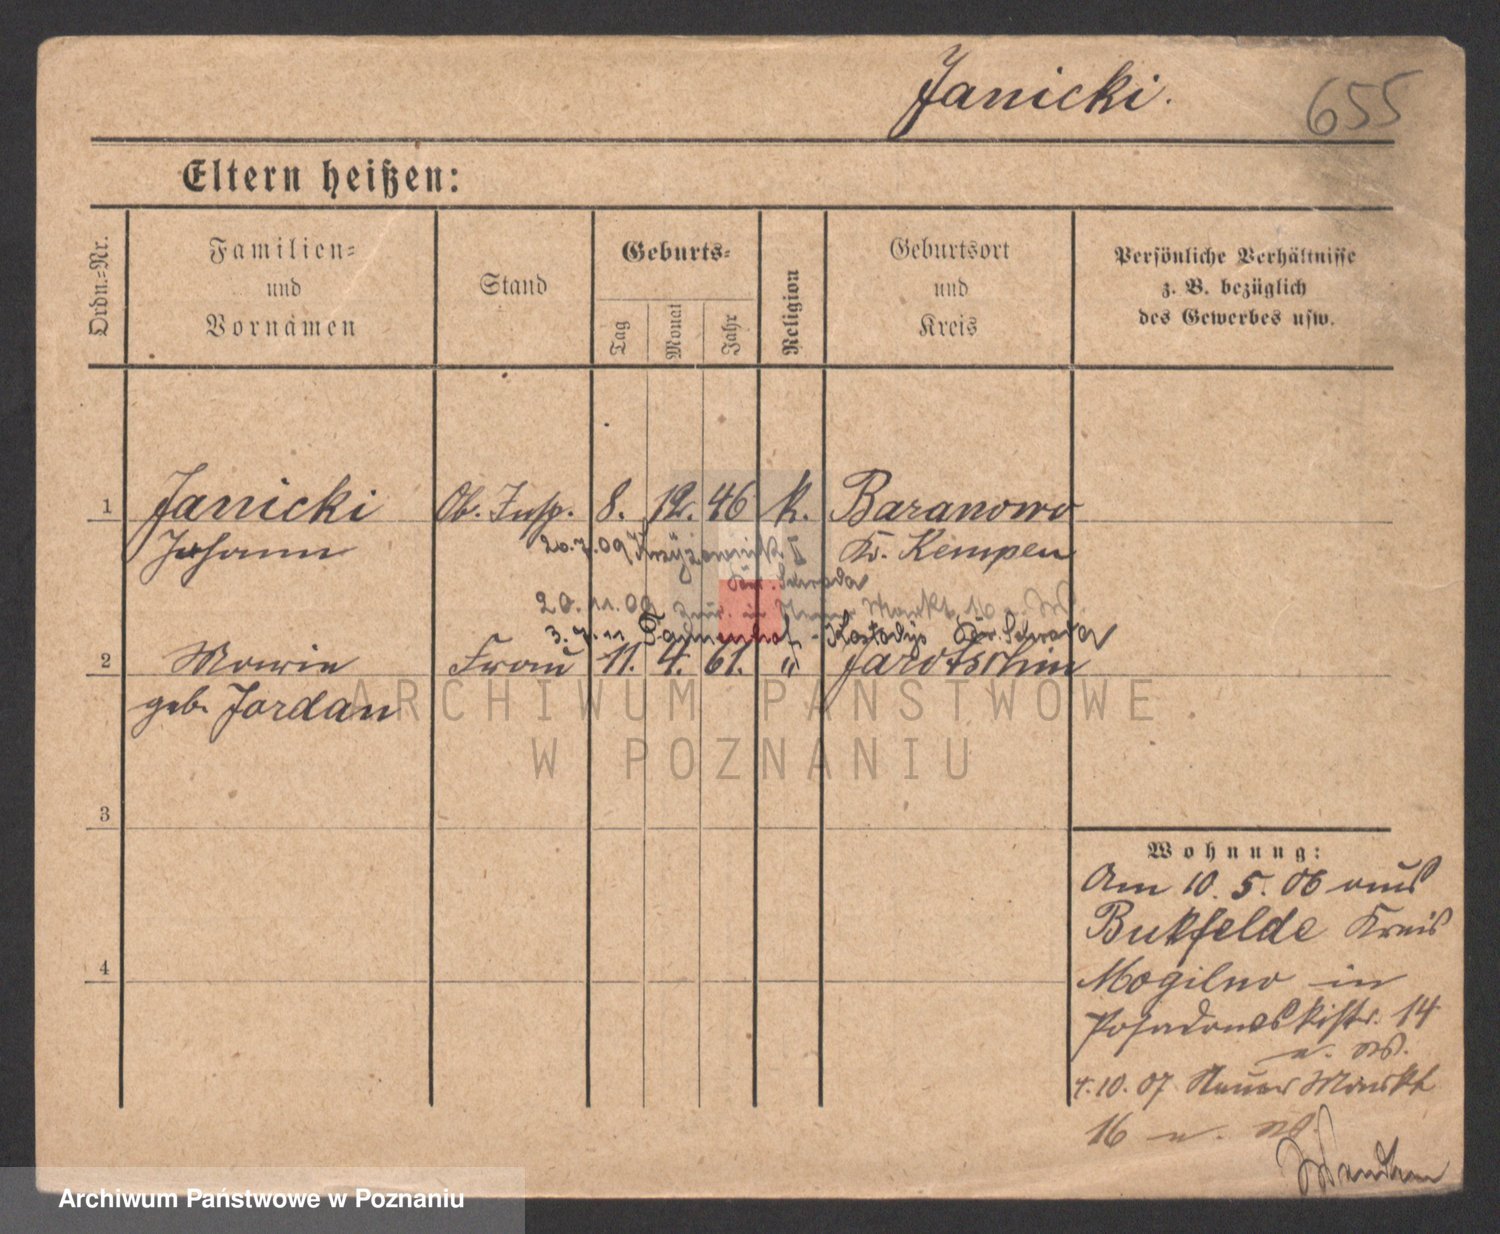 Janicki.
655
Eltern heißen:
Ordn.-Nr.
Familien-
und
Vornamen
Stand
Geburts-
Tag
Monat
Jahr
Religion
Geburtsort
und
Kreis
Persönliche Verhältnisse
z. B. bezüglich
des Gewerbes usw.
1 Janicki Ob. Insp. 8. 12. 46 k. Baranowo
Johann Kr. Kempen
20.7.09
20.11.09 Markt 16
3.7.11 Kostschin Kr. Schroda
2 Marie Frau 11. 4. 61. " Jarotschin
geb. Jordan
3
4
Wohnung:
Am 10. 5. 06 aus
Bukfelde Kreis
Mogilno in
Posadowskistr. 14
4.10.07 Neuer Markt
16
Wenden
ARCHIWUM PAŃSTWOWE
W POZNANIU
Archiwum Państwowe w Poznaniu